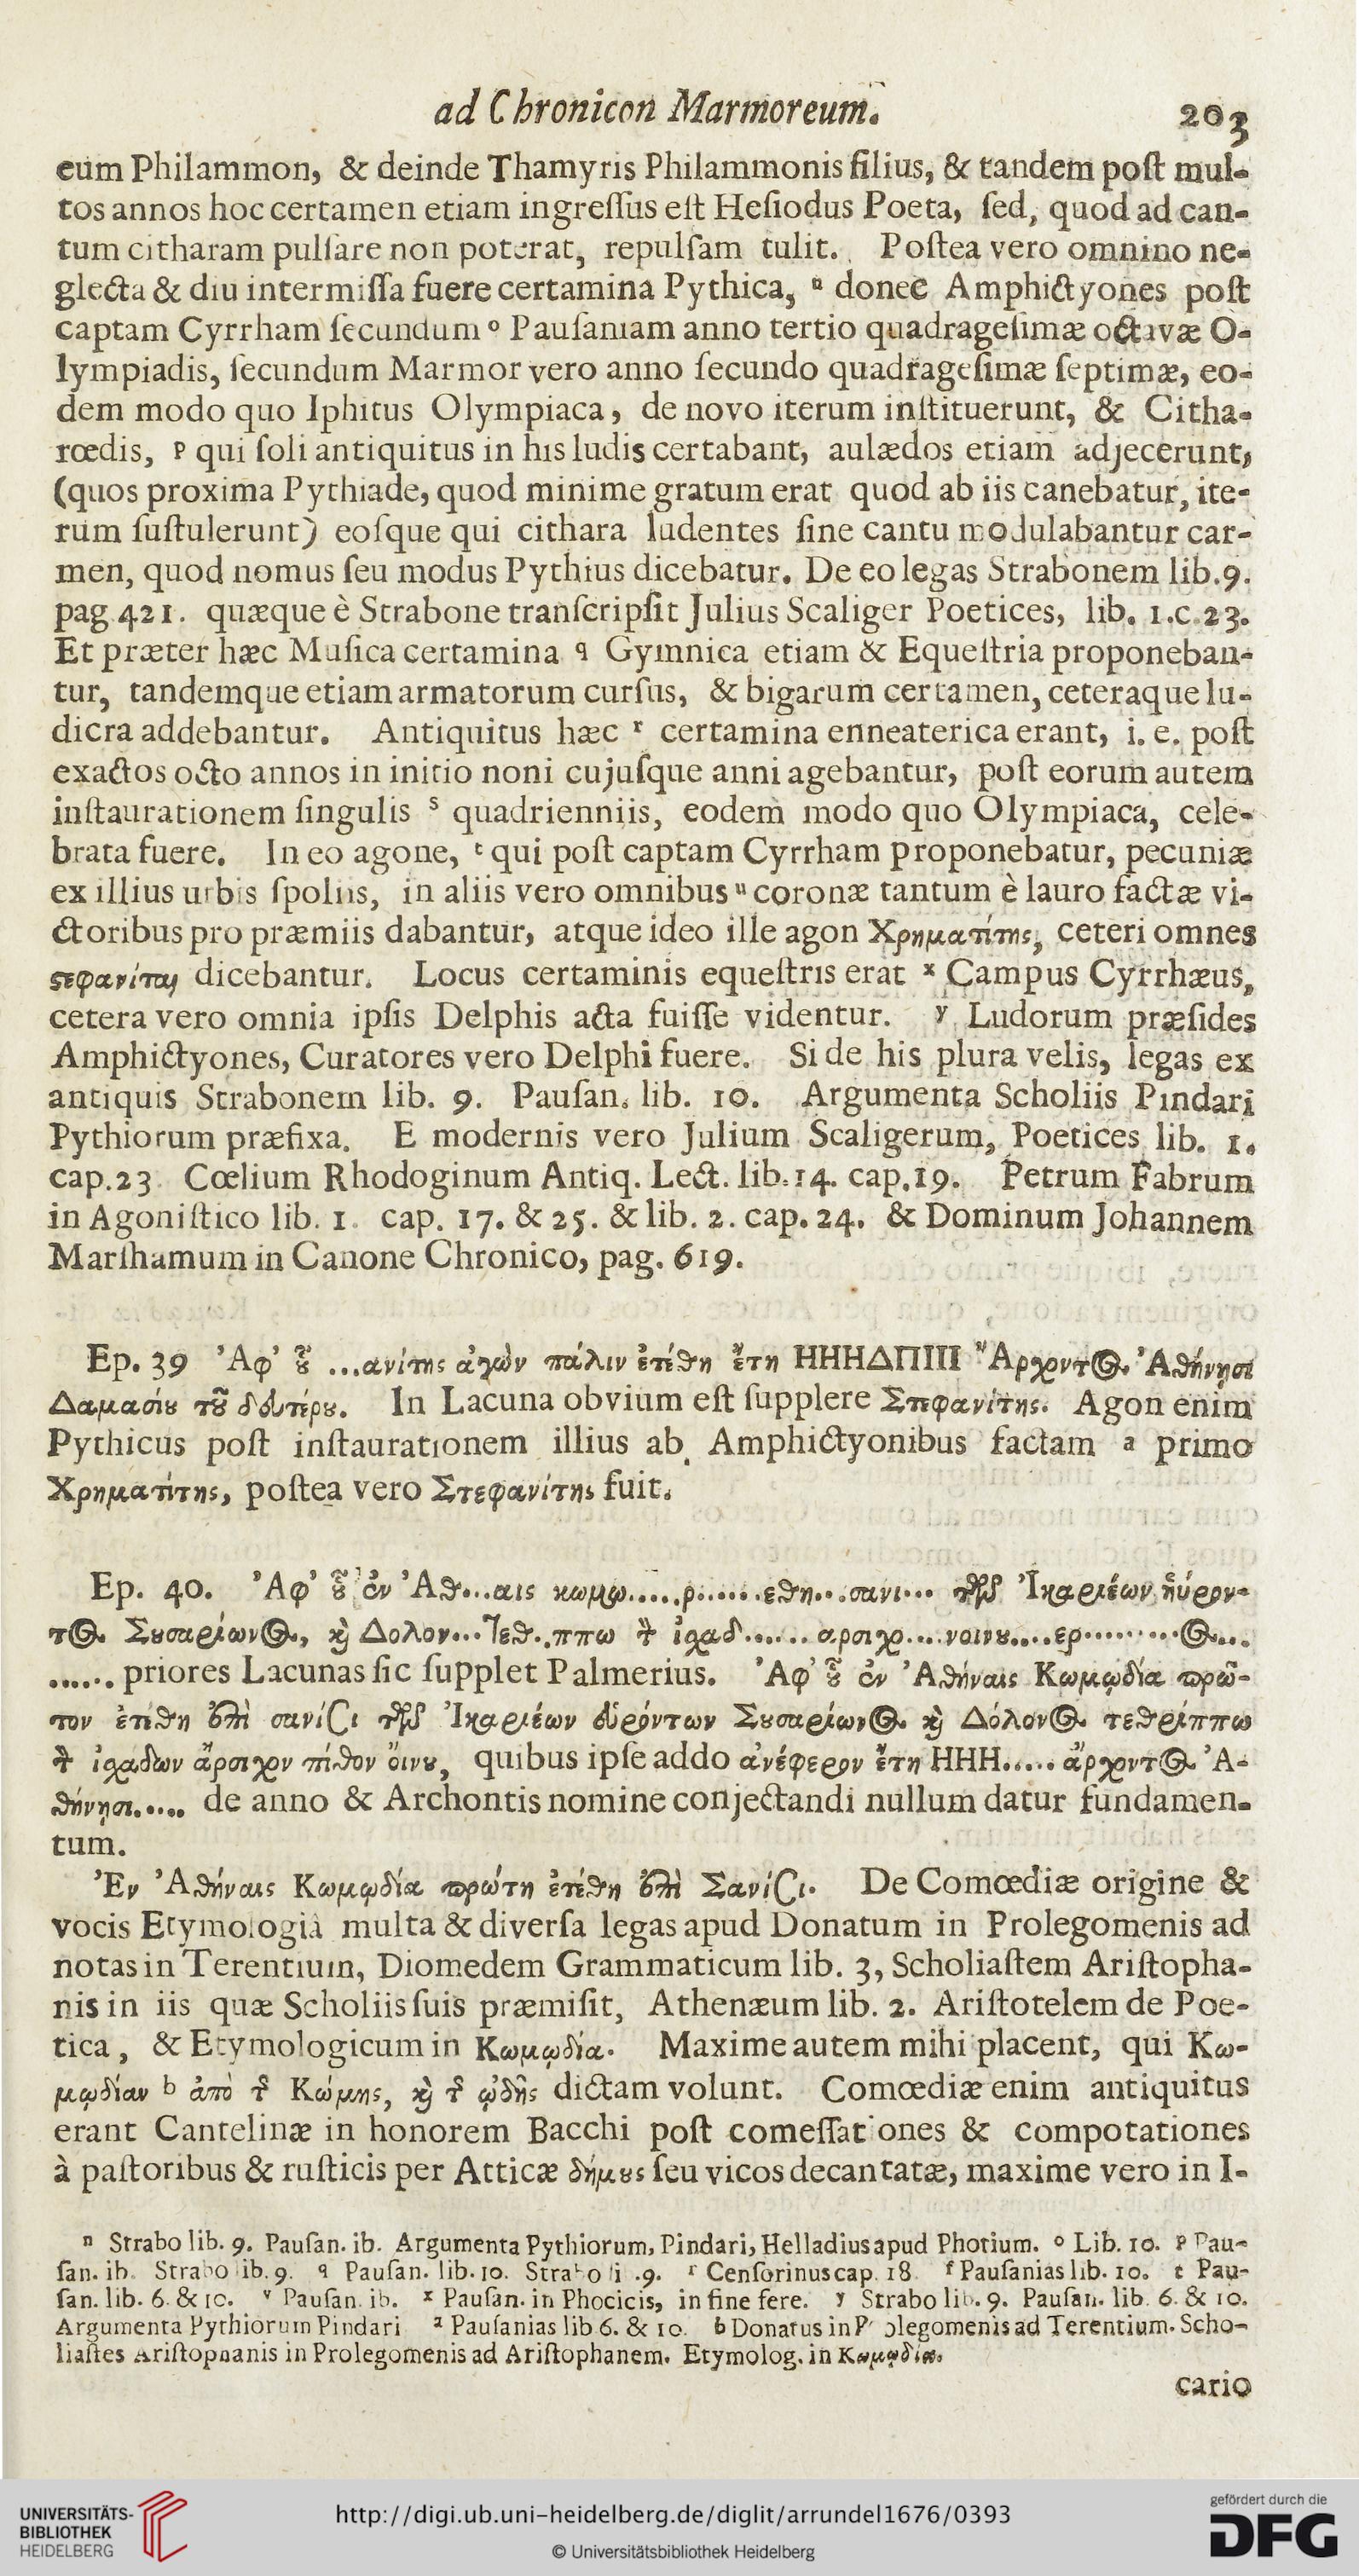 ad Chronicon Marmoreum. 203
eum Philammon, & deinde Thamyris Philammonis filius, & tandem poſt mul-
tos annos hoc certamen etiam ingreſſus eſt Heſiodus Poeta, ſed, quod ad can-
tum citharam pulſare non poterat, repulſam tulit. Poſtea vero omnino ne-
glecta & diu intermiſſa fuere certamina Pythica, ⁿ donec Amphictyones poſt
captam Cyrrham ſecundum º Pauſaniam anno tertio quadrageſimæ octavæ O-
lympiadis, ſecundum Marmor vero anno ſecundo quadrageſimæ ſeptimæ, eo-
dem modo quo Iphitus Olympiaca, de novo iterum inſtituerunt, & Citha-
rœdis, ᵖ qui ſoli antiquitus in his ludis certabant, aulædos etiam adjecerunt,
(quos proxima Pythiade, quod minime gratum erat quod ab iis canebatur, ite-
rum ſuſtulerunt) eoſque qui cithara ludentes ſine cantu modulabantur car-
men, quod nomus ſeu modus Pythius dicebatur. De eo legas Strabonem lib. 9.
pag. 421. quæque è Strabone tranſcripſit Julius Scaliger Poetices, lib. 1. c. 23.
Et præter hæc Muſica certamina q Gymnica etiam & Equeſtria proponeban-
tur, tandemque etiam armatorum curſus, & bigarum certamen, ceteraque lu-
dicra addebantur. Antiquitus hæc ʳ certamina enneaterica erant, i. e. poſt
exactos octo annos in initio noni cujuſque anni agebantur, poſt eorum autem
inſtaurationem ſingulis ˢ quadrienniis, eodem modo quo Olympiaca, cele-
brata fuere. In eo agone, ᵗ qui poſt captam Cyrrham proponebatur, pecuniæ
ex illius urbis ſpoliis, in aliis vero omnibus ᵘ coronæ tantum è lauro factæ vi-
ctoribus pro præmiis dabantur, atque ideo ille agon Χρηματίτης, ceteri omnes
ϛεφανίται dicebantur. Locus certaminis equeſtris erat ˣ Campus Cyrrhæus,
cetera vero omnia ipſis Delphis acta fuiſſe videntur. ʸ Ludorum præſides
Amphictyones, Curatores vero Delphi fuere. Si de his plura velis, legas ex
antiquis Strabonem lib. 9. Pauſan. lib. 10. Argumenta Scholiis Pindari
Pythiorum præfixa. E modernis vero Julium Scaligerum, Poetices lib. 1.
cap. 23 Cœlium Rhodoginum Antiq. Lect. lib. 14. cap. 19. Petrum Fabrum
in Agoniſtico lib. 1. cap. 17. & 25. & lib. 2. cap. 24. & Dominum Johannem
Marſhamum in Canone Chronico, pag. 619.
Ep. 39 Ἀφ' ȣ̃ ...ανίτης ἀγὼν πάλιν ἐτέθη ἔτη ΗΗΗΔΠΙΙΙ Ἄρχοντ⊙. Ἀθήνησι
Δαμασίȣ τȣ̃ δευτέρȣ. In Lacuna obvium eſt ſupplere Στεφανίτης. Agon enim
Pythicus poſt inſtaurationem illius ab Amphictyonibus factam ª primo
Χρηματίτης, poſtea vero Στεφανίτης fuit.
Ep. 40. Ἀφ' ȣ̃ ἐν Ἀθ...αις κωμῳ......ρ.......εθη....σανι... τῶν Ἰκαριέων ηὕρον-
τ⊙. Σȣσαρίων⊙., καὶ Δολον...Τεθ..ππω τ ἰχαδ.......αρσιχ....νοινȣ.....ερ..........⊙...
...... priores Lacunas ſic ſupplet Palmerius. Ἀφ' ȣ̃ ἐν Ἀθήναις Κωμῳδία πρῶ-
τον ἐτέθη ἐπὶ σανίσι τῶν Ἰκαριέων εὑρόντων Σȣσαρίων⊙. καὶ Δόλον⊙. τεθρίππω
τ ἰχαδων ἄρσιχον πίθον ὄινȣ, quibus ipſe addo ἀνέφερον ἔτη ΗΗΗ..... ἄρχοντ⊙. Ἀ-
θήνησι...... de anno & Archontis nomine conjectandi nullum datur fundamen-
tum.
Ἐν Ἀθήναις Κωμῳδία πρώτη ἐτέθη ἐπὶ Σανίσι. De Comœdiæ origine &
vocis Etymologia multa & diverſa legas apud Donatum in Prolegomenis ad
notas in Terentium, Diomedem Grammaticum lib. 3, Scholiaſtem Ariſtopha-
nis in iis quæ Scholiis ſuis præmiſit, Athenæum lib. 2. Ariſtotelem de Poe-
tica, & Etymologicum in Κωμῳδία. Maxime autem mihi placent, qui Κω-
μῳδίαν ᵇ ἀπὸ τῆς Κώμης, καὶ τῆς ᾠδῆς dictam volunt. Comœdiæ enim antiquitus
erant Cantelinæ in honorem Bacchi poſt comeſſationes & compotationes
à paſtoribus & ruſticis per Atticæ δήμȣς ſeu vicos decantatæ, maxime vero in I-
ⁿ Strabo lib. 9. Pauſan. ib. Argumenta Pythiorum, Pindari, Helladius apud Photium. º Lib. 10. ᵖ Pau-
ſan. ib. Strabo lib. 9. q Pauſan. lib. 10. Strabo li .9. ʳ Cenſorinus cap. 18 ſ Pauſanias lib. 10. t Pau-
ſan. lib. 6. & 10. ᵛ Pauſan. ib. ˣ Pauſan. in Phocicis, in fine fere. ʸ Strabo lib. 9. Pauſan. lib. 6. & 10.
Argumenta Pythiorum Pindari ª Pauſanias lib 6. & 10. b Donatus in Prolegomenis ad Terentium. Scho-
liaſtes Ariſtophanis in Prolegomenis ad Ariſtophanem. Etymolog. in Κωμῳδία.
cario
UNIVERSITÄTS-
BIBLIOTHEK
HEIDELBERG
http://digi.ub.uni-heidelberg.de/diglit/arrundel1676/0393
© Universitätsbibliothek Heidelberg
gefördert durch die
DFG